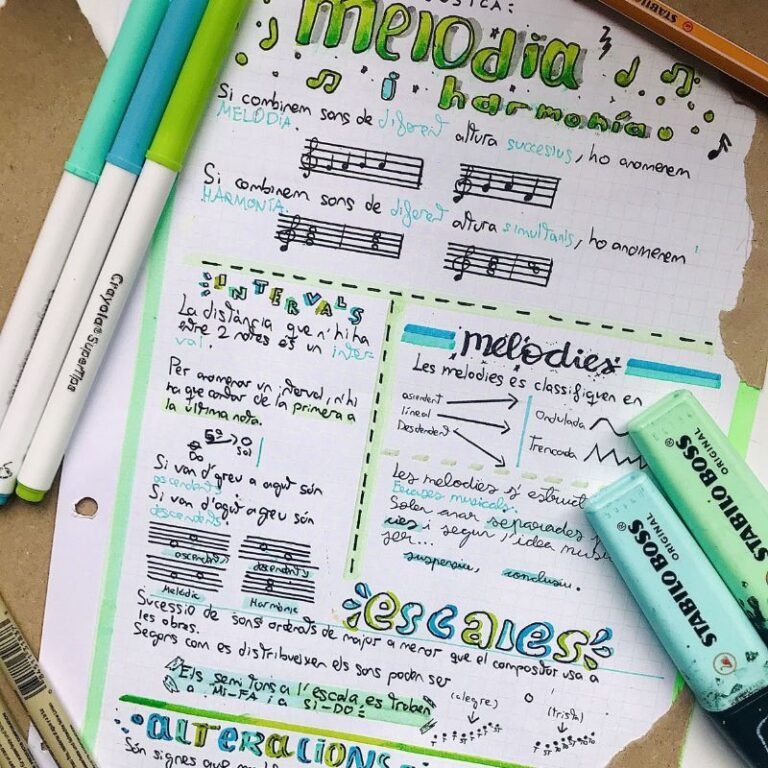 MÚSICA:
melodia
i harmonía
Si combinem sons de diferent altura succesius, ho anomenem
MELODÍA.
Si combinem sons de diferent altura simultanis, ho anomenem
HARMONÍA.
INTERVALS
La distància que n'hi ha
entre 2 notes és un inter-
val.
Per anomenar un interval, n'hi
ha que contar de la primera a
la última nota.
Do
Sol
Si van d'greu a agut són
ascendents
Si van d'agut a greu són
descendents
ascendents
descendents
Melòdic
Harmònic
melodies
Les melodies es classifiquen en
ascendent
lineal
Descendent
Ondulada
Trencada
Les melodies s'estruct
Frases musicals.
Solen anar separades
i segun l'idea music
ser...
suspensiu, conclusiu.
escales
Sucessio de sons ordenats de major a menor que el compositor usa a
les obras.
Segons com es distribueixen els sons poden ser
Els semitons a l'escala, es troben
a Mi-FA i a SI-DO:
(alegre)
o
(trista)
alteracions
Són signes que
Crayola® SuperTips
STABILO BOSS
ORIGINAL
STABILO BOSS
ORIGINAL
STABILO